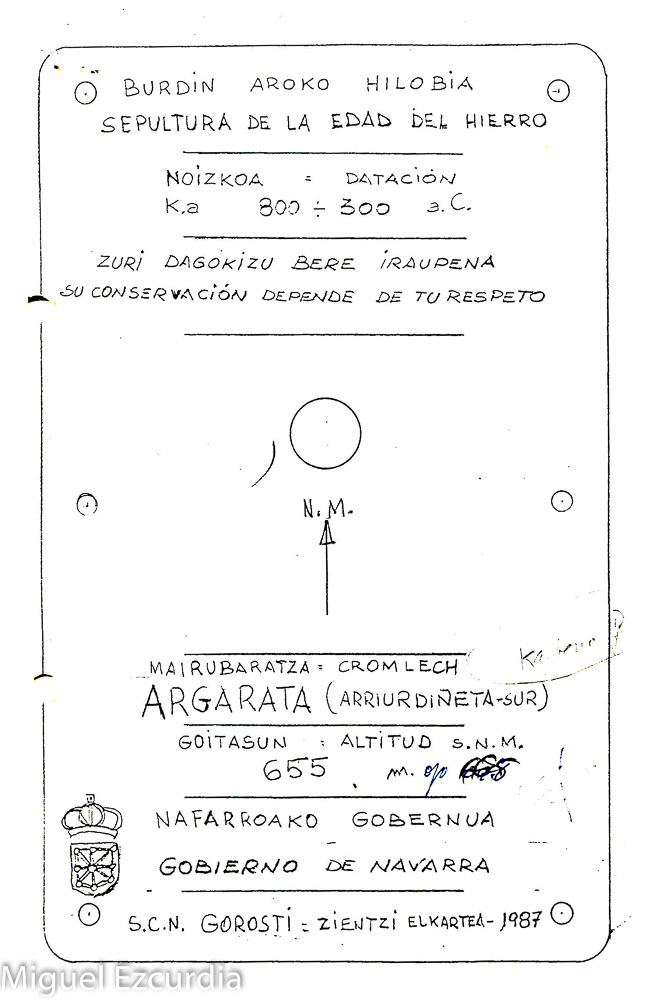 BURDIN AROKO HILOBIA
SEPULTURA DE LA EDAD DEL HIERRO
NOIZKOA = DATACIÓN
K.a 800 ÷ 300 a.C.
ZURI DAGOKIZU BERE IRAUPENA
SU CONSERVACIÓN DEPENDE DE TU RESPETO
N.M.
MAIRUBARATZA = CROMLECH
ARGARATA (ARRIURDIÑETA-SUR)
GOITASUN : ALTITUD S.N.M.
655 m.
NAFARROAKO GOBERNUA
GOBIERNO DE NAVARRA
S.C.N. GOROSTI = ZIENTZI ELKARTEA - 1987
Miguel Ezcurdia